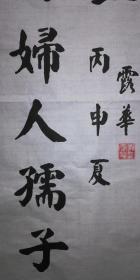 婦人孺子
丙申夏
露華